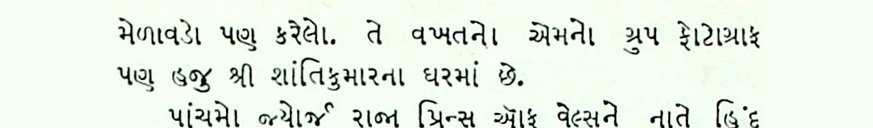 મેળાવડો પણ કરેલો. તે વખતનો એમનો ગ્રુપ ફોટોગ્રાફ
પણ હજુ શ્રી શાંતિકુમારના ઘરમાં છે.
પાંચમો જ્યોર્જ રાજા પ્રિન્સ ઑફ વેલ્સને નાતે હિંદ